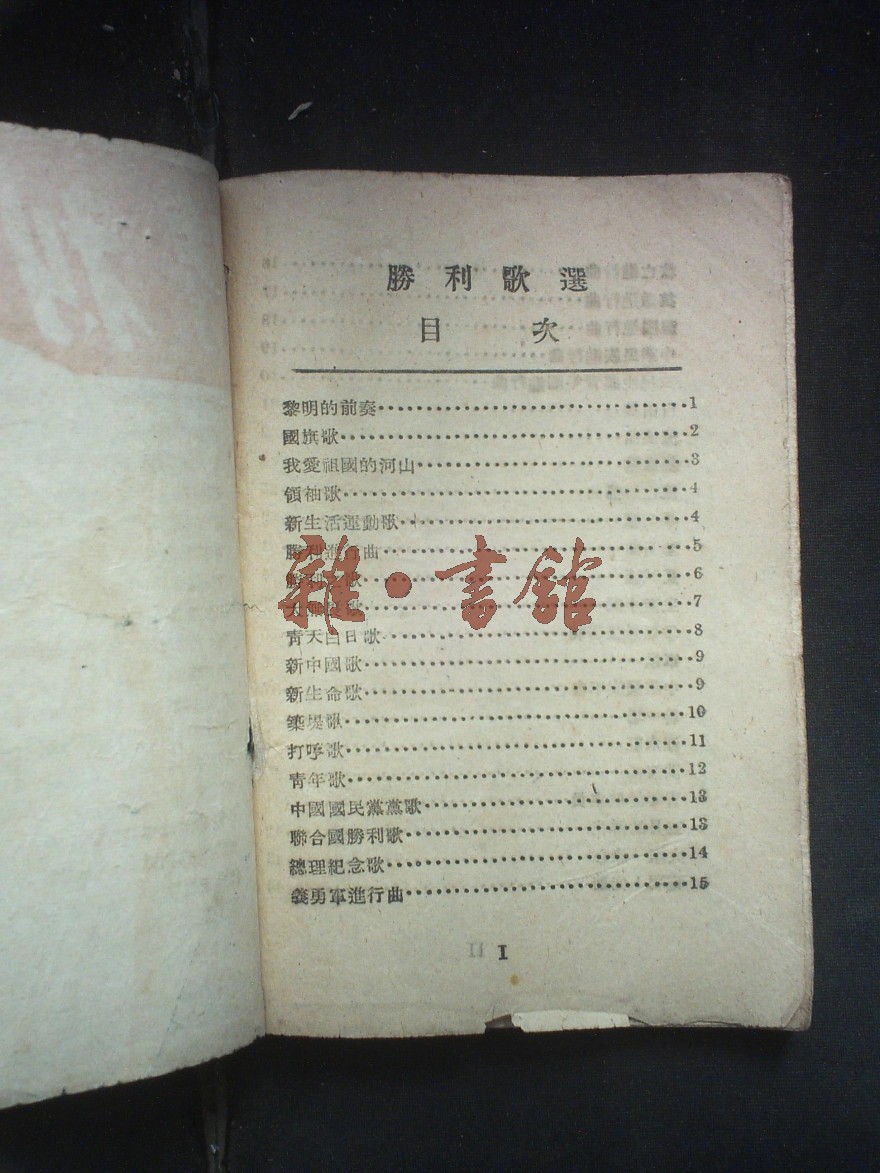 勝利歌選
目次
黎明的前奏····1
國旗歌····2
我愛祖國的河山····3
領袖歌····4
新生活運動歌····4
勝利進行曲····5
勝利 歌····6
歌····7
青天白日歌····8
新中國歌····9
新生命歌····9
築堤歌····10
打 歌····11
青年歌····12
中國國民黨黨歌····13
聯合國勝利歌····13
總理紀念歌····14
義勇軍進行曲····15
I
雜·書館